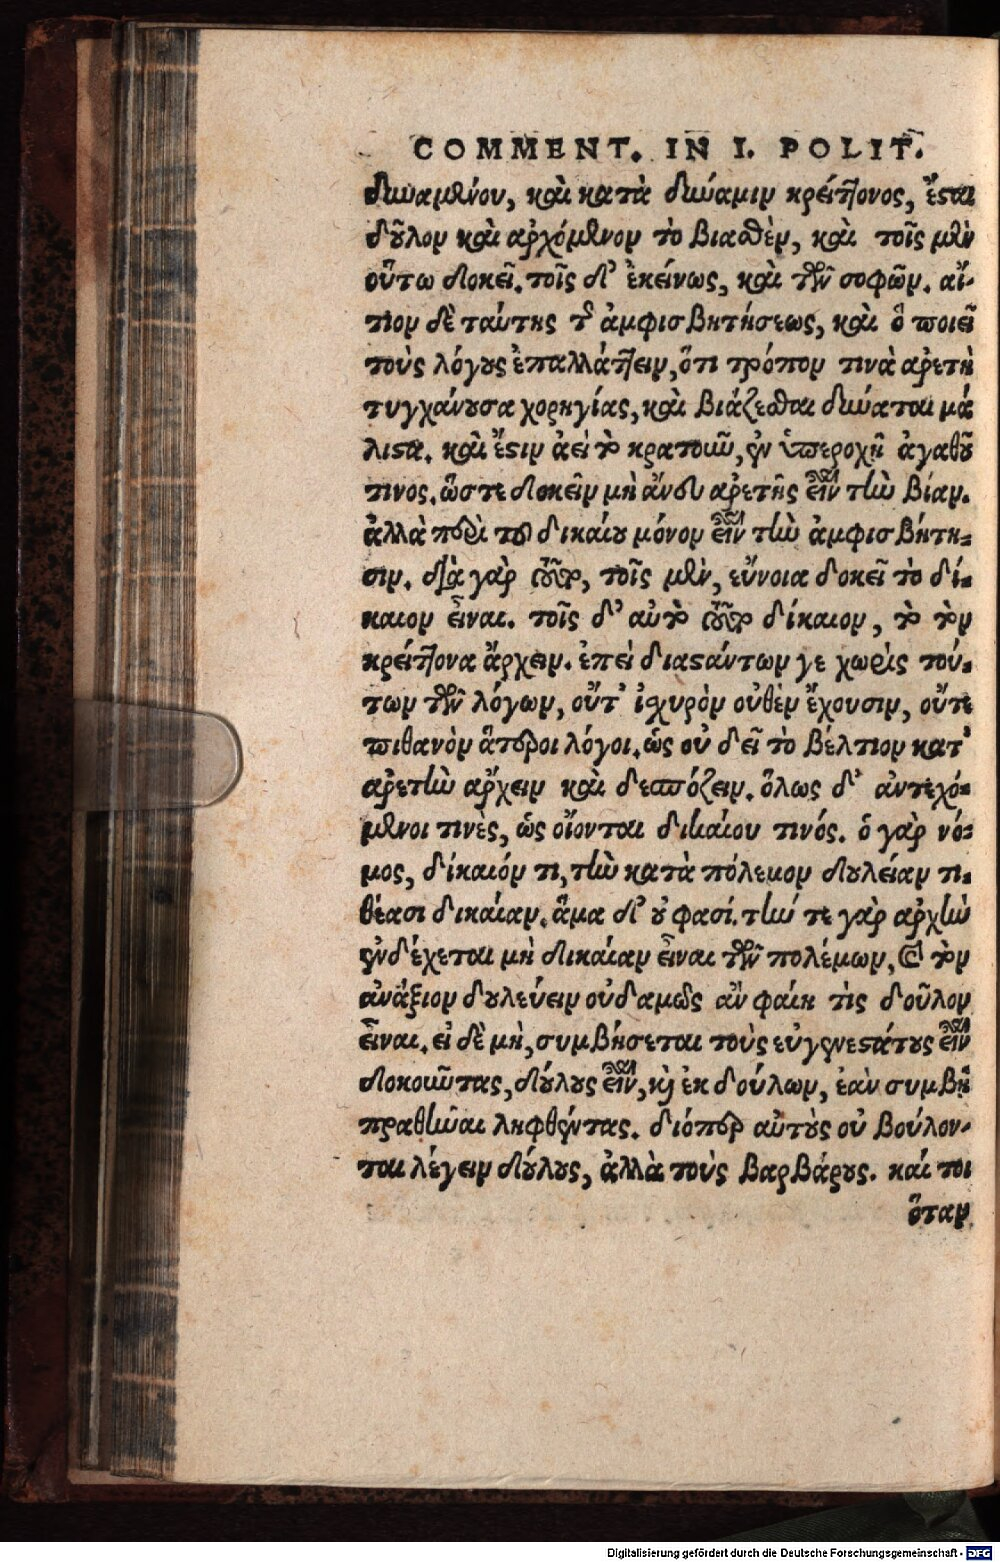 COMMENT. IN I. POLIT.
δυναμένου, καὶ κατὰ δύναμιν κρείττονος, ἔσται
δοῦλον καὶ ἀρχόμενον τὸ βιασθὲν, καὶ τοῖς μὲν
οὕτω δοκεῖ. τοῖς δ' ἐκείνως, καὶ τῶν σοφῶν. αἴ-
τιον δὲ ταύτης τῆς ἀμφισβητήσεως, καὶ ὃ ποιεῖ
τοὺς λόγους ἐπαλλάττειν, ὅτι τρόπον τινὰ ἀρετὴ
τυγχάνουσα χορηγίας, καὶ βιάζεσθαι δύναται μά
λιστα. καὶ ἔστιν ἀεὶ τὸ κρατοῦν, ἐν ὑπεροχῇ ἀγαθοῦ
τινος. ὥστε δοκεῖν μὴ ἄνευ ἀρετῆς εἶναι τὴν βίαν.
ἀλλὰ περὶ τοῦ δικαίου μόνον εἶναι τὴν ἀμφισβήτη-
σιν. διὰ γὰρ τοῦτο, τοῖς μὲν, εὔνοια δοκεῖ τὸ δί-
καιον εἶναι. τοῖς δ' αὐτὸ τοῦτο δίκαιον, τὸ τὸν
κρείττονα ἄρχειν. ἐπεὶ διαστάντων γε χωρὶς τού-
των τῶν λόγων, οὔτ' ἰσχυρὸν οὐθὲν ἔχουσιν, οὔτε
πιθανὸν ἅτεροι λόγοι. ὡς οὐ δεῖ τὸ βέλτιον κατ'
ἀρετὴν ἄρχειν καὶ δεσπόζειν. ὅλως δ' ἀντεχό-
μενοι τινὲς, ὡς οἴονται δικαίου τινός. ὁ γὰρ νό-
μος, δίκαιόν τι, τὴν κατὰ πόλεμον δουλείαν τι-
θέασι δικαίαν. ἅμα δ' οὔ φασί. τήν τε γὰρ ἀρχὴν
ἐνδέχεται μὴ δικαίαν εἶναι τῶν πολέμων, καὶ τὸν
ἀνάξιον δουλεύειν οὐδαμῶς ἂν φαίη τὶς δοῦλον
εἶναι. εἰ δὲ μὴ, συμβήσεται τοὺς εὐγενεστάτους εἶναι
δοκοῦντας, δούλους εἶναι, καὶ ἐκ δούλων, ἐὰν συμβῇ
πραθῆναι ληφθέντας. διόπερ αὐτοὺς οὐ βούλον-
ται λέγειν δούλους, ἀλλὰ τοὺς βαρβάρους. καί τοι
ὅταν
Digitalisierung gefördert durch die Deutsche Forschungsgemeinschaft - DFG